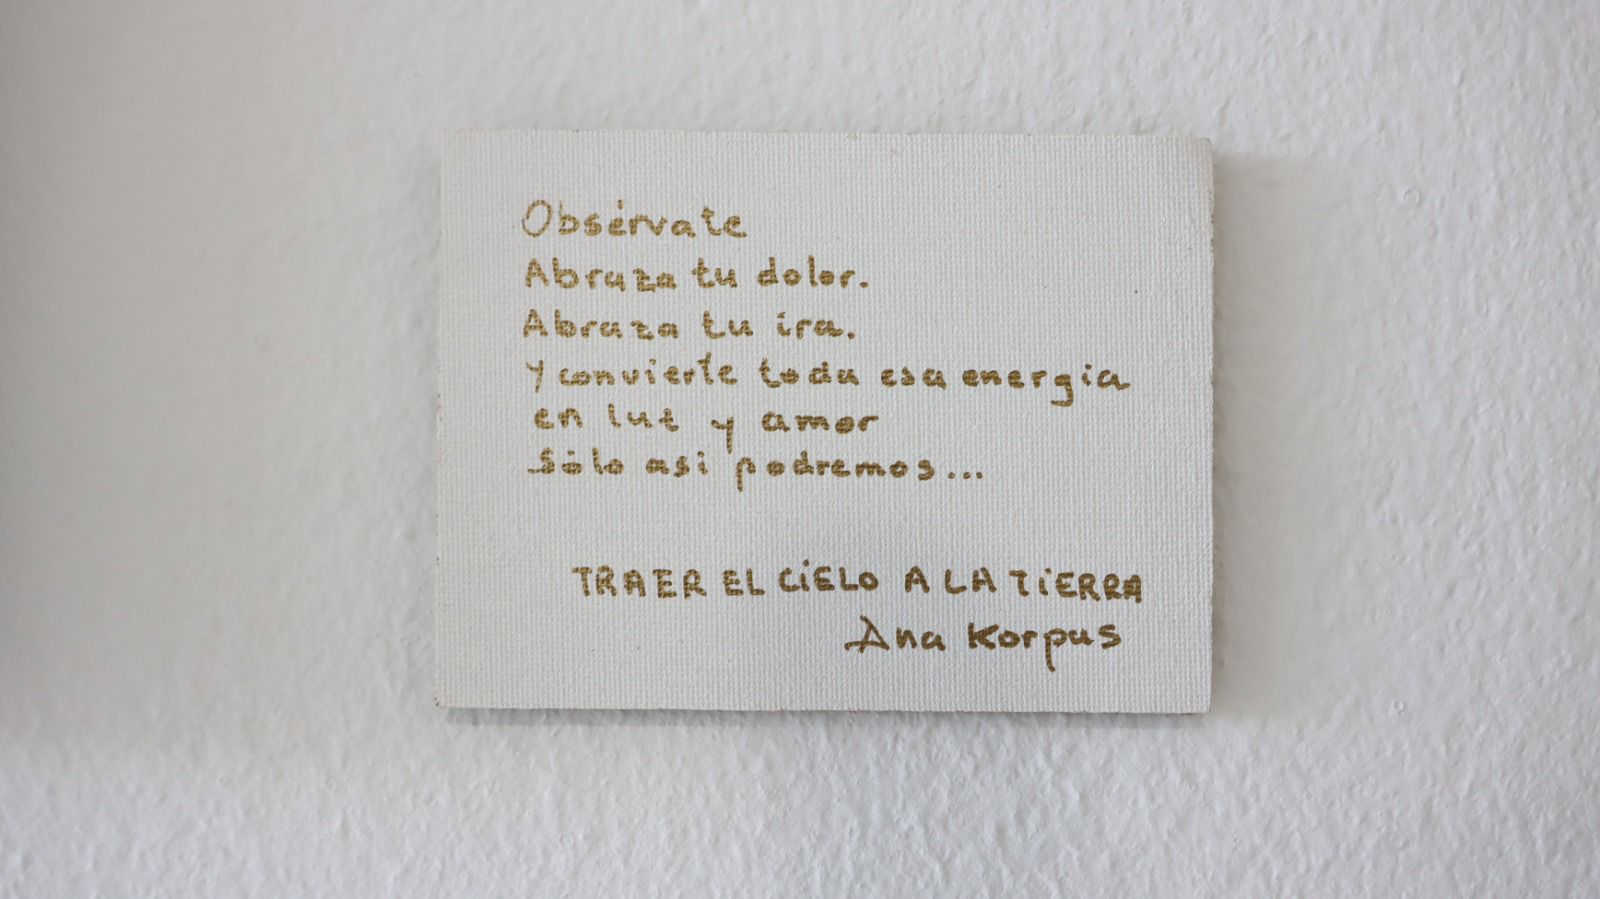 Obsérvate
Abraza tu dolor.
Abraza tu ira.
Y convierte toda esa energia
en luz y amor
Sólo asi podremos...
TRAER EL CiELO A LA TiERRA
Ana Korpus